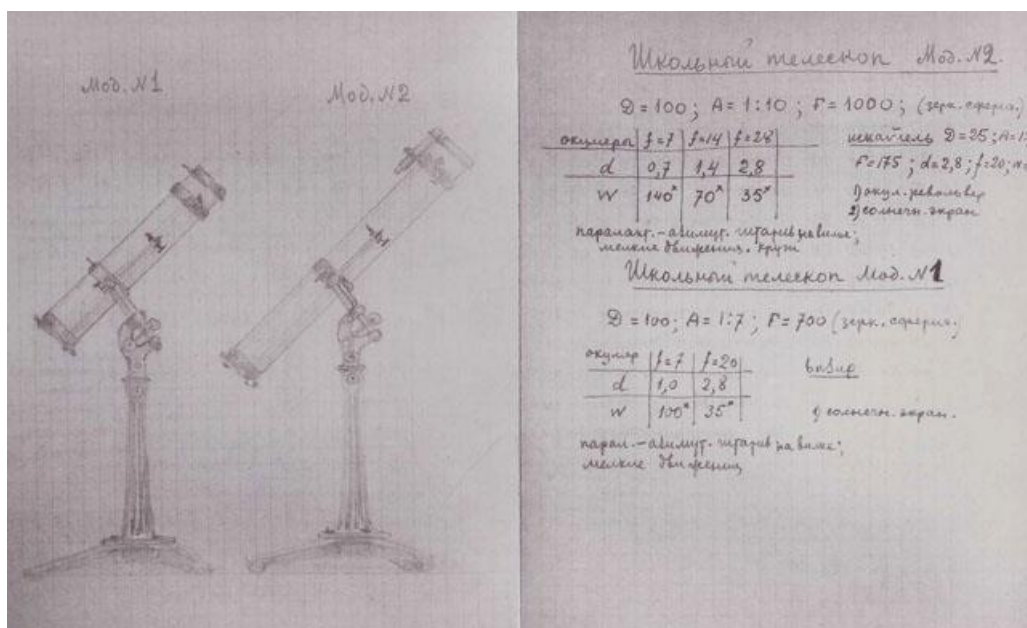 Мод. N1
Мод. N2
Школьный телескоп Мод. N2.
D = 100; A = 1:10; F = 1000; (зерк. сферич.)
окуляры f=7 f=14 f=28
d 0,7 1,4 2,8
W 140ˣ 70ˣ 35ˣ
искатель D=25; A=1:
F=175; d=2,8; f=20;
1) окул. револьвер
2) солнечн. экран
паралакт.-азимут. штатив на вилке;
мелкие движения. круги
Школьный телескоп Мод. N1
D = 100; A = 1:7; F = 700 (зерк. сферич.)
окуляр f=7 f=20
d 1,0 2,8
W 100ˣ 35ˣ
1) солнечн. экран.
парал.-азимут. штатив на вилке;
мелкие движения